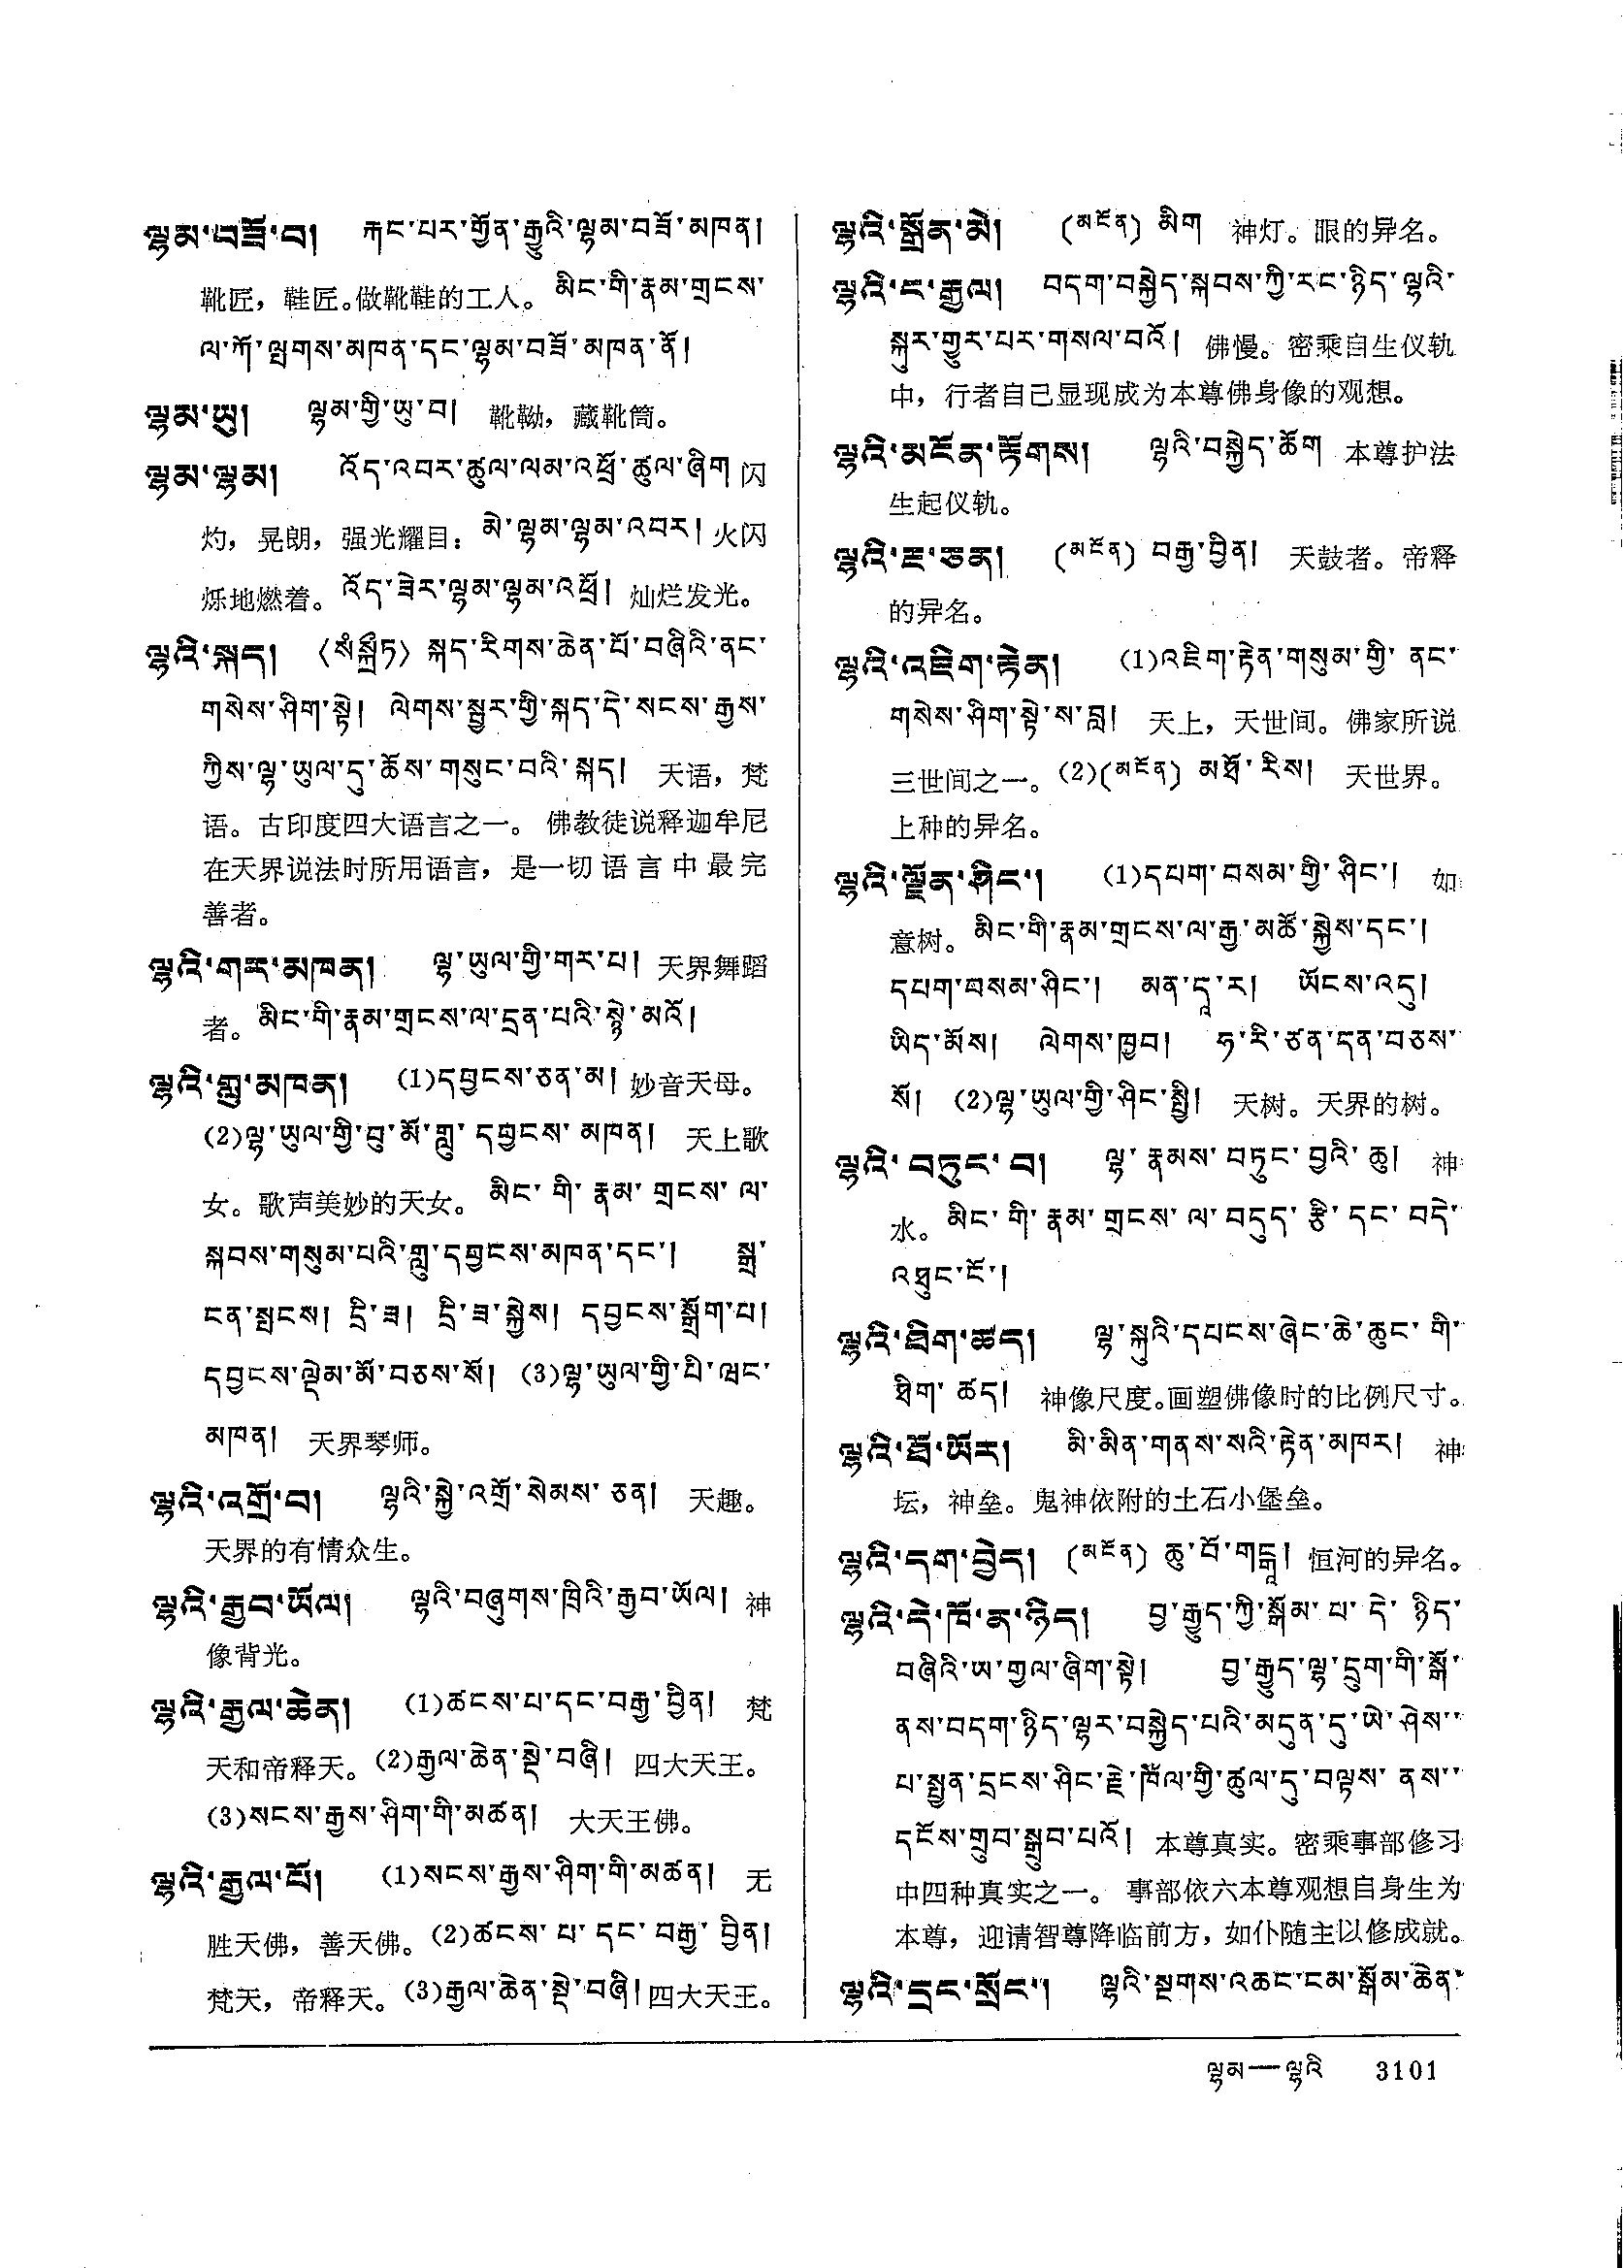 ལྷམ་བཟོ་བ། རྐང་པར་གྱོན་རྒྱུའི་ལྷམ་བཟོ་མཁན།
靴匠，鞋匠。做靴鞋的工人。 མིང་གི་རྣམ་གྲངས་
ལ་ཀོ་ལྤགས་མཁན་དང་ལྷམ་བཟོ་མཁན་ནོ།
ལྷམ་ཡུ། ལྷམ་གྱི་ཡུ་བ། 靴靿，藏靴筒。
ལྷམ་ལྷམ། འོད་འབར་ཚུལ་ལམ་འཕྲོ་ཚུལ་ཞིག 闪
灼，晃朗，强光耀目： མེ་ལྷམ་ལྷམ་འབར། 火闪
烁地燃着。 འོད་ཟེར་ལྷམ་ལྷམ་འཕྲོ། 灿烂发光。
ལྷའི་སྐད། 〈སཾསྐྲྀཏ〉 སྐད་རིགས་ཆེན་པོ་བཞིའི་ནང་
གསེས་ཤིག་སྟེ། ལེགས་སྦྱར་གྱི་སྐད་དེ་སངས་རྒྱས་
ཀྱིས་ལྷ་ཡུལ་དུ་ཆོས་གསུང་བའི་སྐད། 天语，梵
语。古印度四大语言之一。 佛教徒说释迦牟尼
在天界说法时所用语言，是一切语言中最完
善者。
ལྷའི་གར་མཁན། ལྷ་ཡུལ་གྱི་གར་པ། 天界舞蹈
者。 མིང་གི་རྣམ་གྲངས་ལ་དྲན་པའི་སྙེ་མའོ།
ལྷའི་གླུ་མཁན། (1)དབྱངས་ཅན་མ། 妙音天母。
(2)ལྷ་ཡུལ་གྱི་བུ་མོ་གླུ་དབྱངས་མཁན། 天上歌
女。歌声美妙的天女。 མིང་གི་རྣམ་གྲངས་ལ་
སྐབས་གསུམ་པའི་གླུ་དབྱངས་མཁན་དང་། སྒྲ་
ངན་སྤངས། དྲི་ཟ། དྲི་ཟ་སྐྱེས། དབྱངས་སྒྲོག་པ།
དབྱངས་ལྡེམ་མོ་བཅས་སོ། (3)ལྷ་ཡུལ་གྱི་པི་ཝང་
མཁན། 天界琴师。
ལྷའི་འགྲོ་བ། ལྷའི་སྐྱེ་འགྲོ་སེམས་ཅན། 天趣。
天界的有情众生。
ལྷའི་རྒྱབ་ཡོལ། ལྷའི་བཞུགས་ཁྲིའི་རྒྱབ་ཡོལ། 神
像背光。
ལྷའི་རྒྱལ་ཆེན། (1)ཚངས་པ་དང་བརྒྱ་བྱིན། 梵
天和帝释天。(2)རྒྱལ་ཆེན་སྡེ་བཞི། 四大天王。
(3)སངས་རྒྱས་ཤིག་གི་མཚན། 大天王佛。
ལྷའི་རྒྱལ་པོ། (1)སངས་རྒྱས་ཤིག་གི་མཚན། 无
胜天佛，善天佛。(2)ཚངས་པ་དང་བརྒྱ་བྱིན།
梵天，帝释天。(3)རྒྱལ་ཆེན་སྡེ་བཞི། 四大天王。
ལྷའི་སྒྲོན་མེ། (མངོན) མིག 神灯。眼的异名。
ལྷའི་ང་རྒྱལ། བདག་བསྐྱེད་སྐབས་ཀྱི་རང་ཉིད་ལྷའི་
སྐུར་གྱུར་པར་གསལ་བའོ། 佛慢。密乘自生仪轨
中，行者自己显现成为本尊佛身像的观想。
ལྷའི་མངོན་རྟོགས། ལྷའི་བསྐྱེད་ཆོག 本尊护法
生起仪轨。
ལྷའི་རྔ་ཅན། (མངོན) བརྒྱ་བྱིན། 天鼓者。帝释
的异名。
ལྷའི་འཇིག་རྟེན། (1)འཇིག་རྟེན་གསུམ་གྱི་ནང་
གསེས་ཤིག་སྟེ་ས་བླ། 天上，天世间。佛家所说
三世间之一。(2)(མངོན) མཐོ་རིས། 天世界。
上种的异名。
ལྷའི་ལྗོན་ཤིང་། (1)དཔག་བསམ་གྱི་ཤིང་། 如
意树。 མིང་གི་རྣམ་གྲངས་ལ་རྒྱ་མཚོ་སྐྱེས་དང་།
དཔག་བསམ་ཤིང་། མན་དཱ་ར། ཡོངས་འདུ།
ཡིད་མོས། ལེགས་ཁྱབ། ཧ་རི་ཙན་དན་བཅས་
སོ། (2)ལྷ་ཡུལ་གྱི་ཤིང་སྤྱི། 天树。天界的树。
ལྷའི་བཏུང་བ། ལྷ་རྣམས་བཏུང་བྱའི་ཆུ། 神
水。 མིང་གི་རྣམ་གྲངས་ལ་བདུད་རྩི་དང་བདེ་
འཐུང་ངོ་།
ལྷའི་ཐིག་ཚད། ལྷ་སྐུའི་དཔངས་ཞེང་ཆེ་ཆུང་གི་
ཐིག་ཚད། 神像尺度。画塑佛像时的比例尺寸。
ལྷའི་ཐོ་ཡོར། མི་མིན་གནས་སའི་རྟེན་མཁར། 神
坛，神垒。鬼神依附的土石小堡垒。
ལྷའི་དག་བྱེད། (མངོན) ཆུ་བོ་གངྒཱ། 恒河的异名。
ལྷའི་དེ་ཁོ་ན་ཉིད། བྱ་རྒྱུད་ཀྱི་སྒོམ་པ་དེ་ཉིད་
བཞིའི་ཨ་གྱལ་ཞིག་སྟེ། བྱ་རྒྱུད་ལྷ་དྲུག་གི་སྒོ་
ནས་བདག་ཉིད་ལྷར་བསྐྱེད་པའི་མདུན་དུ་ཡེ་ཤེས་
པ་སྤྱན་དྲངས་ཤིང་རྗེ་ཁོལ་གྱི་ཚུལ་དུ་བལྟས་ནས་
དངོས་གྲུབ་སྒྲུབ་པའོ། 本尊真实。密乘事部修习
中四种真实之一。 事部依六本尊观想自身生为
本尊，迎请智尊降临前方，如仆随主以修成就。
ལྷའི་དྲང་སྲོང་། ལྷའི་སྔགས་འཆང་ངམ་སྒོམ་ཆེན་
ལྷམ—ལྷའི 3101